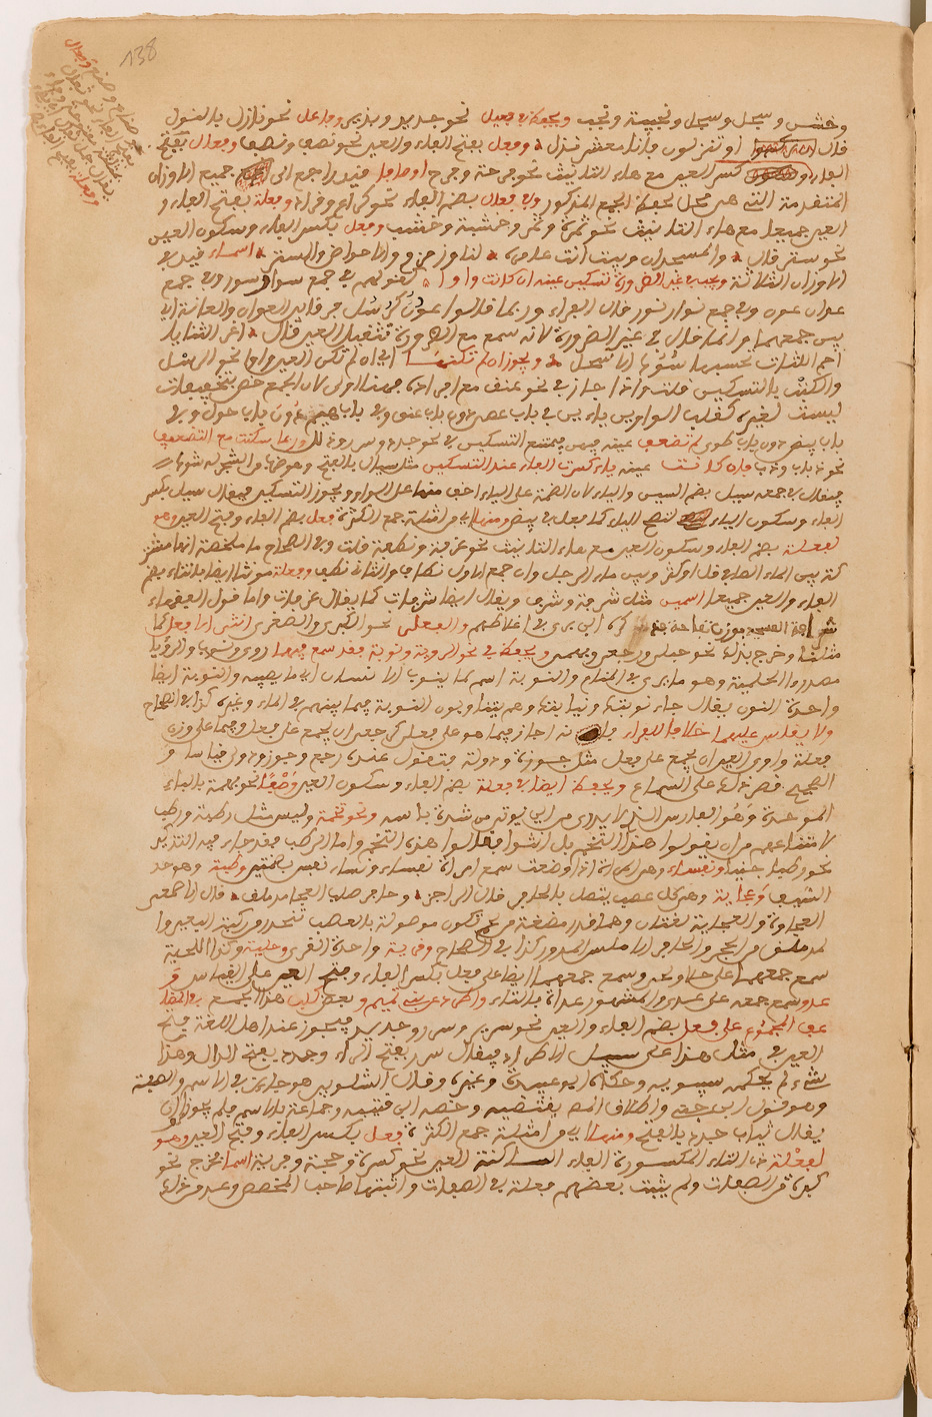 138
وخشن وسحل وسحل ونجيبة ونجب ويحفظ في فعيل نحو جديد ونذير وفاعل نحو نازل بالنزول
قال او تنزلون فانا معشر نزل وفعل بفتح الفاء والعين نحو نصف ونصف وفعال بفتح
الفاء كسر العين مع هاء التانيث نحو فرحة وفرح اوصافا قيد راجع الى جميع الاوزان
المتقدمة التي هي محل يحفظ الجمع المذكور وفي فعال بضم الفاء نحو كراع وفعلة بفتح الفاء و
العين جميعا مع هاء التانيث نحو ثمرة وثمر وخشبة وخشب وفعل بكسر الفاء وسكون العين
نحو ستر قال والمسجدان وبيت انت عامره لنا وزمزم والاحواض والستر اسماء قيد في
الاوزان الثلاثة ويجب في غير الضرورة تسكين عينه ان كانت واوا كقولهم في جمع سوار سور وفي جمع
عوان عون وفي جمع نوار نور قال الفراء وربما قالوا عون كرسل فرقا بين العوان والعانة اي
بين جمعهما وانما قال في غير الضرورة لانه سمع مع الضرورة تثقيل العين قال اغر الثنايا
احم اللثات تحسنها سوك الاسحل ويجوز ان لم تكنها اي ان لم تكن العين واوا نحو الرسل
والكتب بالتسكين قلت واذا جاز في نحو عنق مع افراده فهنا اولى لان الجمع خص بتخفيفات
ليست لغيره كقلب الواوين ياءين في باب عصي دون باب عتو وفي باب صيم دون باب حول وفي
باب بيض دون باب طوبى لم تضعف عينه فيهن فيمتنع التسكين في نحو جدد وسرر وذلل وربما سكنت مع التضعيف
نحو ذباب وذب فان كانت عينه ياء كسرت الفاء عند التسكين مثل سيال بالفتح وهو ضرب من الشجر له شوك
فيقال في جمعه سيل بضم السين والياء لان الضمة على الياء اخف منها على الواو ويجوز التسكين فيقال سيل بكسر
الفاء وسكون الياء لتصح الياء كما فعل في بيض ومنها اي من امثلة جمع الكثرة فعل بضم الفاء وفتح العين وهو
لفعلة بضم الفاء وسكون العين مع هاء التانيث نحو غرفة ونطفة قلت وفي الصحاح ما ملخصه انها مشتر
كة بين الماء الصافي قل او كثر وبين ماء الرجل وان جمع الاول نطاف والثاني نطف وفعلة مونثا ايضا بالتاء بضم
الفاء والعين جميعا اسمين مثل شرفة وشرف ويقال ايضا شرفات كما يقال غرفات واما قول الفقهاء
ذكره ابن بري في اغلاطهم والفعلى نحو الكبرى والصغرى انثى الافعل كما
مثلنا وخرج بذلك نحو حبلى ورجعى وبهمى ويحفظ في نحو الرويا ونوبة فقد سمع فيهما روى ونوب والرؤيا
مصدر را الحلمية وهو ما يرى في المنام والنوبة اسم لما ينوب الانسان اي ما يصيبه والنوبة ايضا
واحدة النوب يقال جاءت نوبتك ونيابتك وهم يتناوبون النوبة فيما بينهم في الماء وغيره كذا في الصحاح
ولا يقاس عليهما خلافا للفراء فانه اجاز فيما هو على فعلى كرجعى ان يجمع على فعل وفيما على وزن
فعلة واوي العين ان يجمع على فعل مثل جوزة ودولة فتقول عنده رجع وجوز ودول قياسا و
الصحيح قصر ذلك على السماع ويحفظ ايضا في فعلة بضم الفاء وسكون العين وصفا نحو بهمة بالباء
الموحدة وهو الفارس الذي لا يدرى من اين يوتى من شدة باسه ونحو تخمة وليس مثل رطبة ورطب
لامتناعهم من ان يقولوا هذا التخم بل انثوا فقالوا هذه التخم واما الرطب فقد جاء فيه التذكير
نحو رطبا جنيا ونفساء وهي المراة اذا وضعت سمع امراة نفساء ونساء نفس بضمتين وظبة وهو حد
السيف وعجاية وهي كل عصب يتصل بالحافر قال الراجز وحافر صلب العجا مدملق قال الاصمعي
العجاوة والعجاية لغتان وهما قدر مضغة من لحم تكون موصولة بالعصب تنحدر من ركبة البعير وا
لمدملق من الحجر والحافر الاملس المدور كذا في الصحاح وقرية واحدة القرى وحلية وكذا اللحية
سمع جمعهما على حلا ولحى وسمع جمعهما ايضا على فعل بكسر الفاء وفتح العين على القياس و
عدو سمع جمعه على عدى والمشهور عداة بالتاء واطرد عند بني تميم وبعض كلب هذا الجمع في المضا
عف المجموع على فعل بضم الفاء والعين نحو سرير وسرر وجديد فيجوز عند اهل اللغة فتح
العين في مثل هذا على سبيل الاطراد فيقال سرر بفتح الراء وجدد بفتح الدال وهذا
شيء لم يحكه سيبويه وحكاه ابو عبيدة وغيره وقال الشلوبين هو جائز في الاسم والصفة
وهو قول ابن جني واطلاق الناظم يقتضيه وخصه ابن قتيبة وجماعة بالاسم فلم يجوزوا ان
يقال ثياب جدد بالفتح ومنها اي من امثلة جمع الكثرة فعل بكسر الفاء وفتح العين وهو
لفعلة ذات التاء المكسورة الفاء الساكنة العين نحو كسرة وحجة ومرية اسما فخرج نحو
كبرة من الصفات ولم يثبت بعضهم فعلة في الصفات واثبتها صاحب المخصص وعد من ذلك